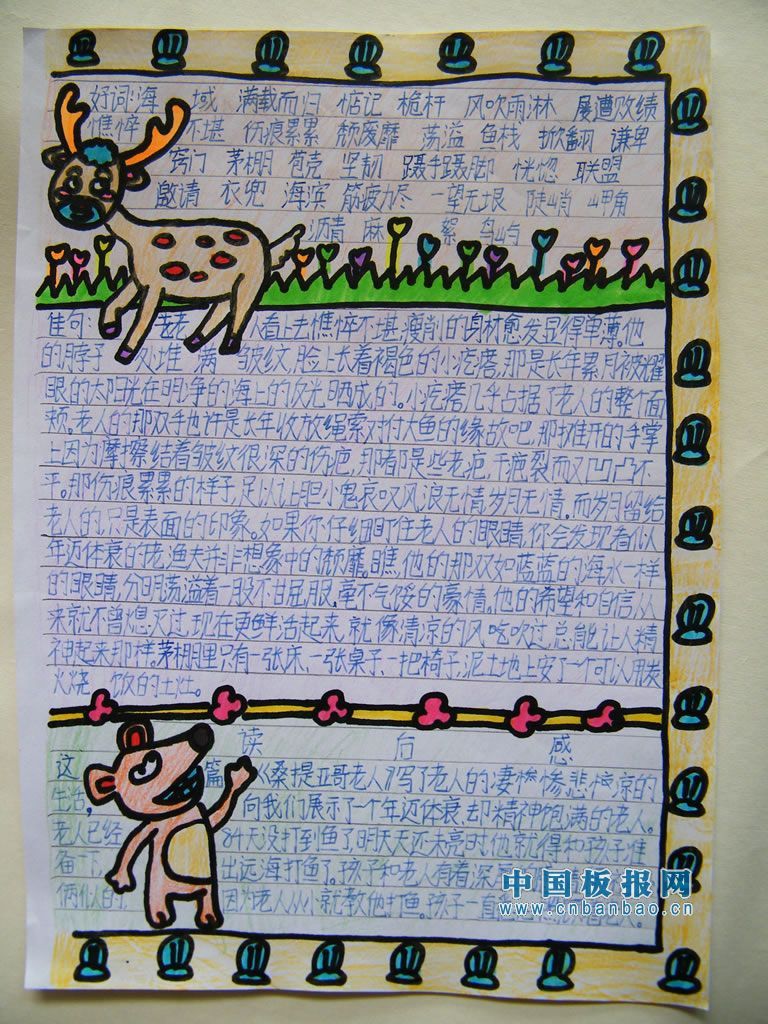 好词:海域 满载而归 惦记 桅杆 风吹雨淋 屡遭败绩
憔悴不堪 伤痕累累 颓废靡 荡溢 鱼栈 掀翻 谦卑
窍门 茅棚 苞壳 坚韧 蹑手蹑脚 恍惚 联盟
邀请 衣兜 海滨 筋疲力尽 一望无垠 陡峭 岬角
沥青 麻絮 岛屿
佳句: 老 人看上去憔悴不堪,瘦削的身材愈发显得单薄。他
的脖子 处堆满 皱纹,脸上长着褐色的小疙瘩,那是长年累月被耀
眼的太阳光在明净的海上的反光晒成的。小疙瘩几乎占据了老人的整个面
颊,老人的那双手也许是长年收放绳索对付大鱼的缘故吧,那摊开的手掌
上因为摩擦结着皱纹很深的伤疤,那都是些老疤,干疤裂而又凹凸不
平。那伤痕累累的样子,足以让胆小鬼哀叹风浪无情岁月无情。而岁月留给
老人的,只是表面的印象。如果你仔细盯住老人的眼睛,你会发现看似
年迈体衰的佬渔夫并非想象中的颓靡。瞧,他的那双如蓝蓝的海水一样
的眼睛,分明荡溢着一股不甘屈服,毫不气馁的豪情。他的希望和自信,从
来就不曾熄灭过,现在更鲜活起来,就像清凉的风吃吹过,总能让人精
神起来那样。茅棚里只有一张床、一张桌子、一把椅子,泥土地上安了一个可以用炭
火烧 饭的土灶。
读后感
这 篇《桑提亚哥老人》写了老人的凄惨悲凉的
生活, 向我们展示了一个年迈体衰,却精神饱满的老人。
老人已经 84天没打到鱼了,明天天还未亮时,他就得和孩子准
备一下, 出远海打鱼了。孩子和老人有着深
俩似的, 因为老人从小就教他打鱼。孩子一直
中国板报网
www.cnbanbao.cn